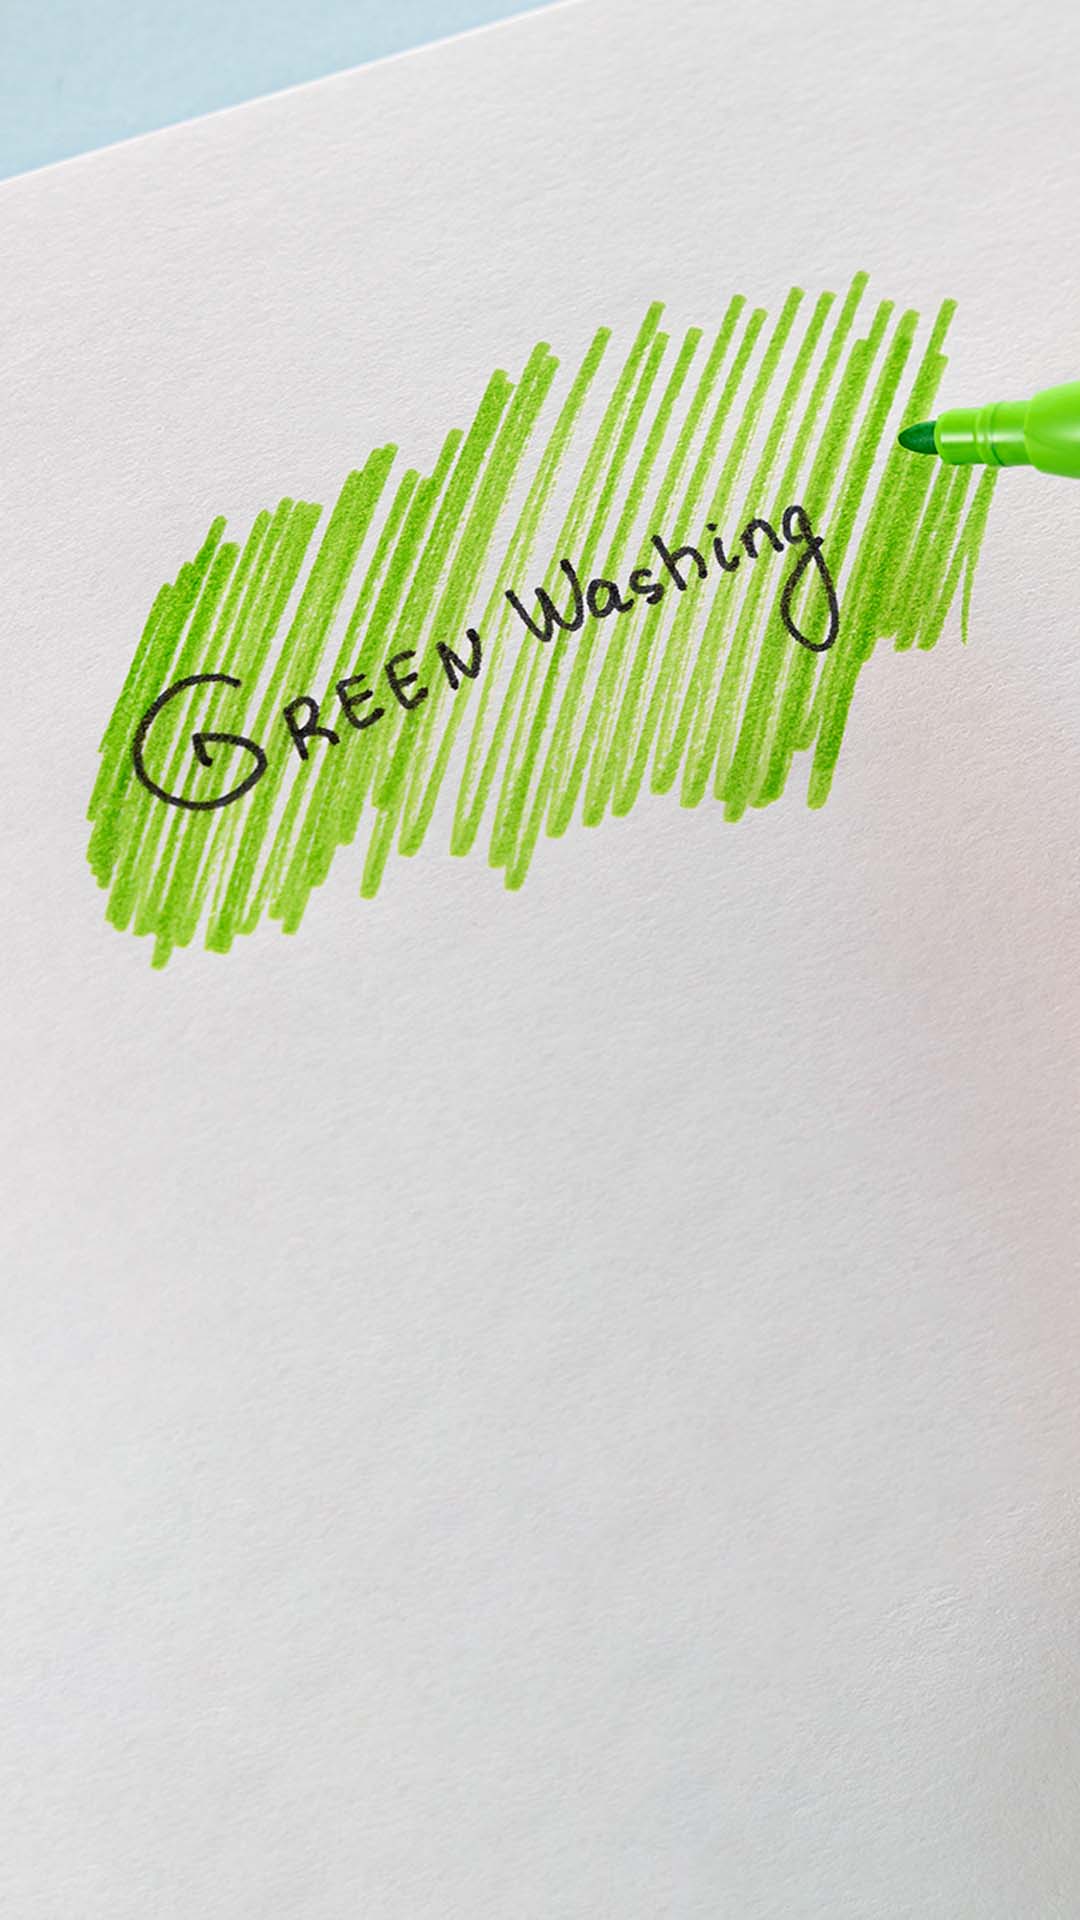 GREEN Washing